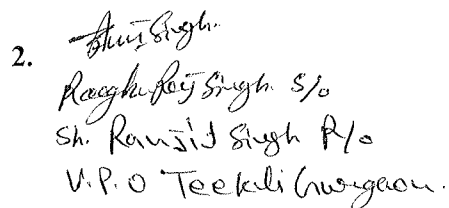 2. Singh.
Raghu Raj Singh. S/o
Sh. Ranjit Singh R/o
V.P.O Teekli Gurgaon.